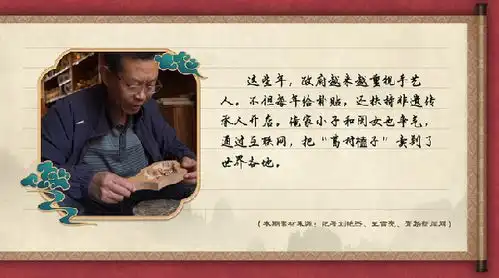 这些年，政府越来越重视手艺
人。不但每年给补贴，还扶持非遗传
承人开店。俺家小子和闺女也争气，
通过互联网，把“葛村榼子”卖到了
世界各地。
（本期素材来源：记者刘艳杰、王雪